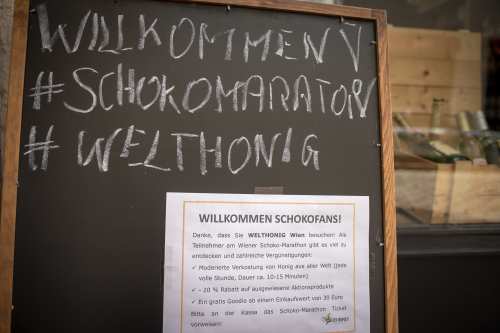 WILLKOMMEN
#SCHOKOMARATON
#WELTHONIG
WILLKOMMEN SCHOKOFANS!
Danke, dass Sie WELTHONIG Wien besuchen! Als
Teilnehmer am Wiener Schoko-Marathon gibt es viel zu
entdecken und zahlreiche Vergünstigungen:
✓ Moderierte Verkostung von Honig aus aller Welt (jede
volle Stunde, Dauer ca. 10-15 Minuten)
✓ - 20 % Rabatt auf ausgewiesene Aktionsprodukte
✓ Ein gratis Goodie ab einem Einkaufswert von 39 Euro
Bitte an der Kassa das Schoko-Marathon Ticket
vorweisen!